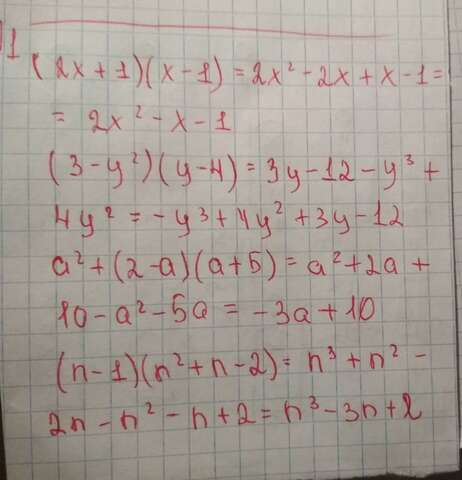 1
(2x+1)(x-1)=2x²-2x+x-1=
=2x²-x-1
(3-y²)(y-4)=3y-12-y³+
4y²=-y³+4y²+3y-12
a²+(2-a)(a+5)=a²+2a+
10-a²-5a=-3a+10
(n-1)(n²+n-2)=n³+n²-
2n-n²-n+2=n³-3n+2